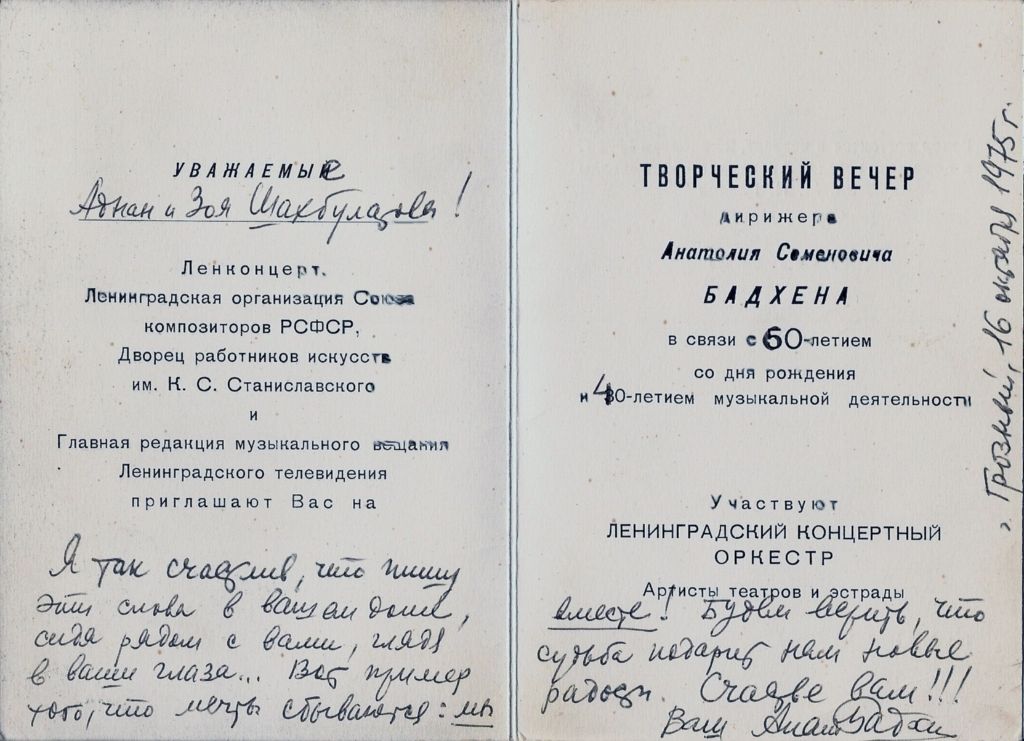 УВАЖАЕМЫЕ
Аднан и Зоя Шахбулатовы!
Ленконцерт,
Ленинградская организация Союза
композиторов РСФСР,
Дворец работников искусств
им. К. С. Станиславского
и
Главная редакция музыкального вещания
Ленинградского телевидения
приглашают Вас на
Я так счастлив, что пишу
эти слова в вашем доме,
сидя рядом с вами, глядя
в ваши глаза... Вот пример
того, что мечты сбываются: мы
ТВОРЧЕСКИЙ ВЕЧЕР
дирижера
Анатолия Семеновича
БАДХЕНА
в связи с 60-летием
со дня рождения
и 40-летием музыкальной деятельности
Участвуют
ЛЕНИНГРАДСКИЙ КОНЦЕРТНЫЙ
ОРКЕСТР
Артисты театров и эстрады
вместе! Будем верить, что
судьба подарит нам новые
радости. Счастье вам!!!
Ваш Анат Бадхен
г. Грозный, 16 октября 1975 г.